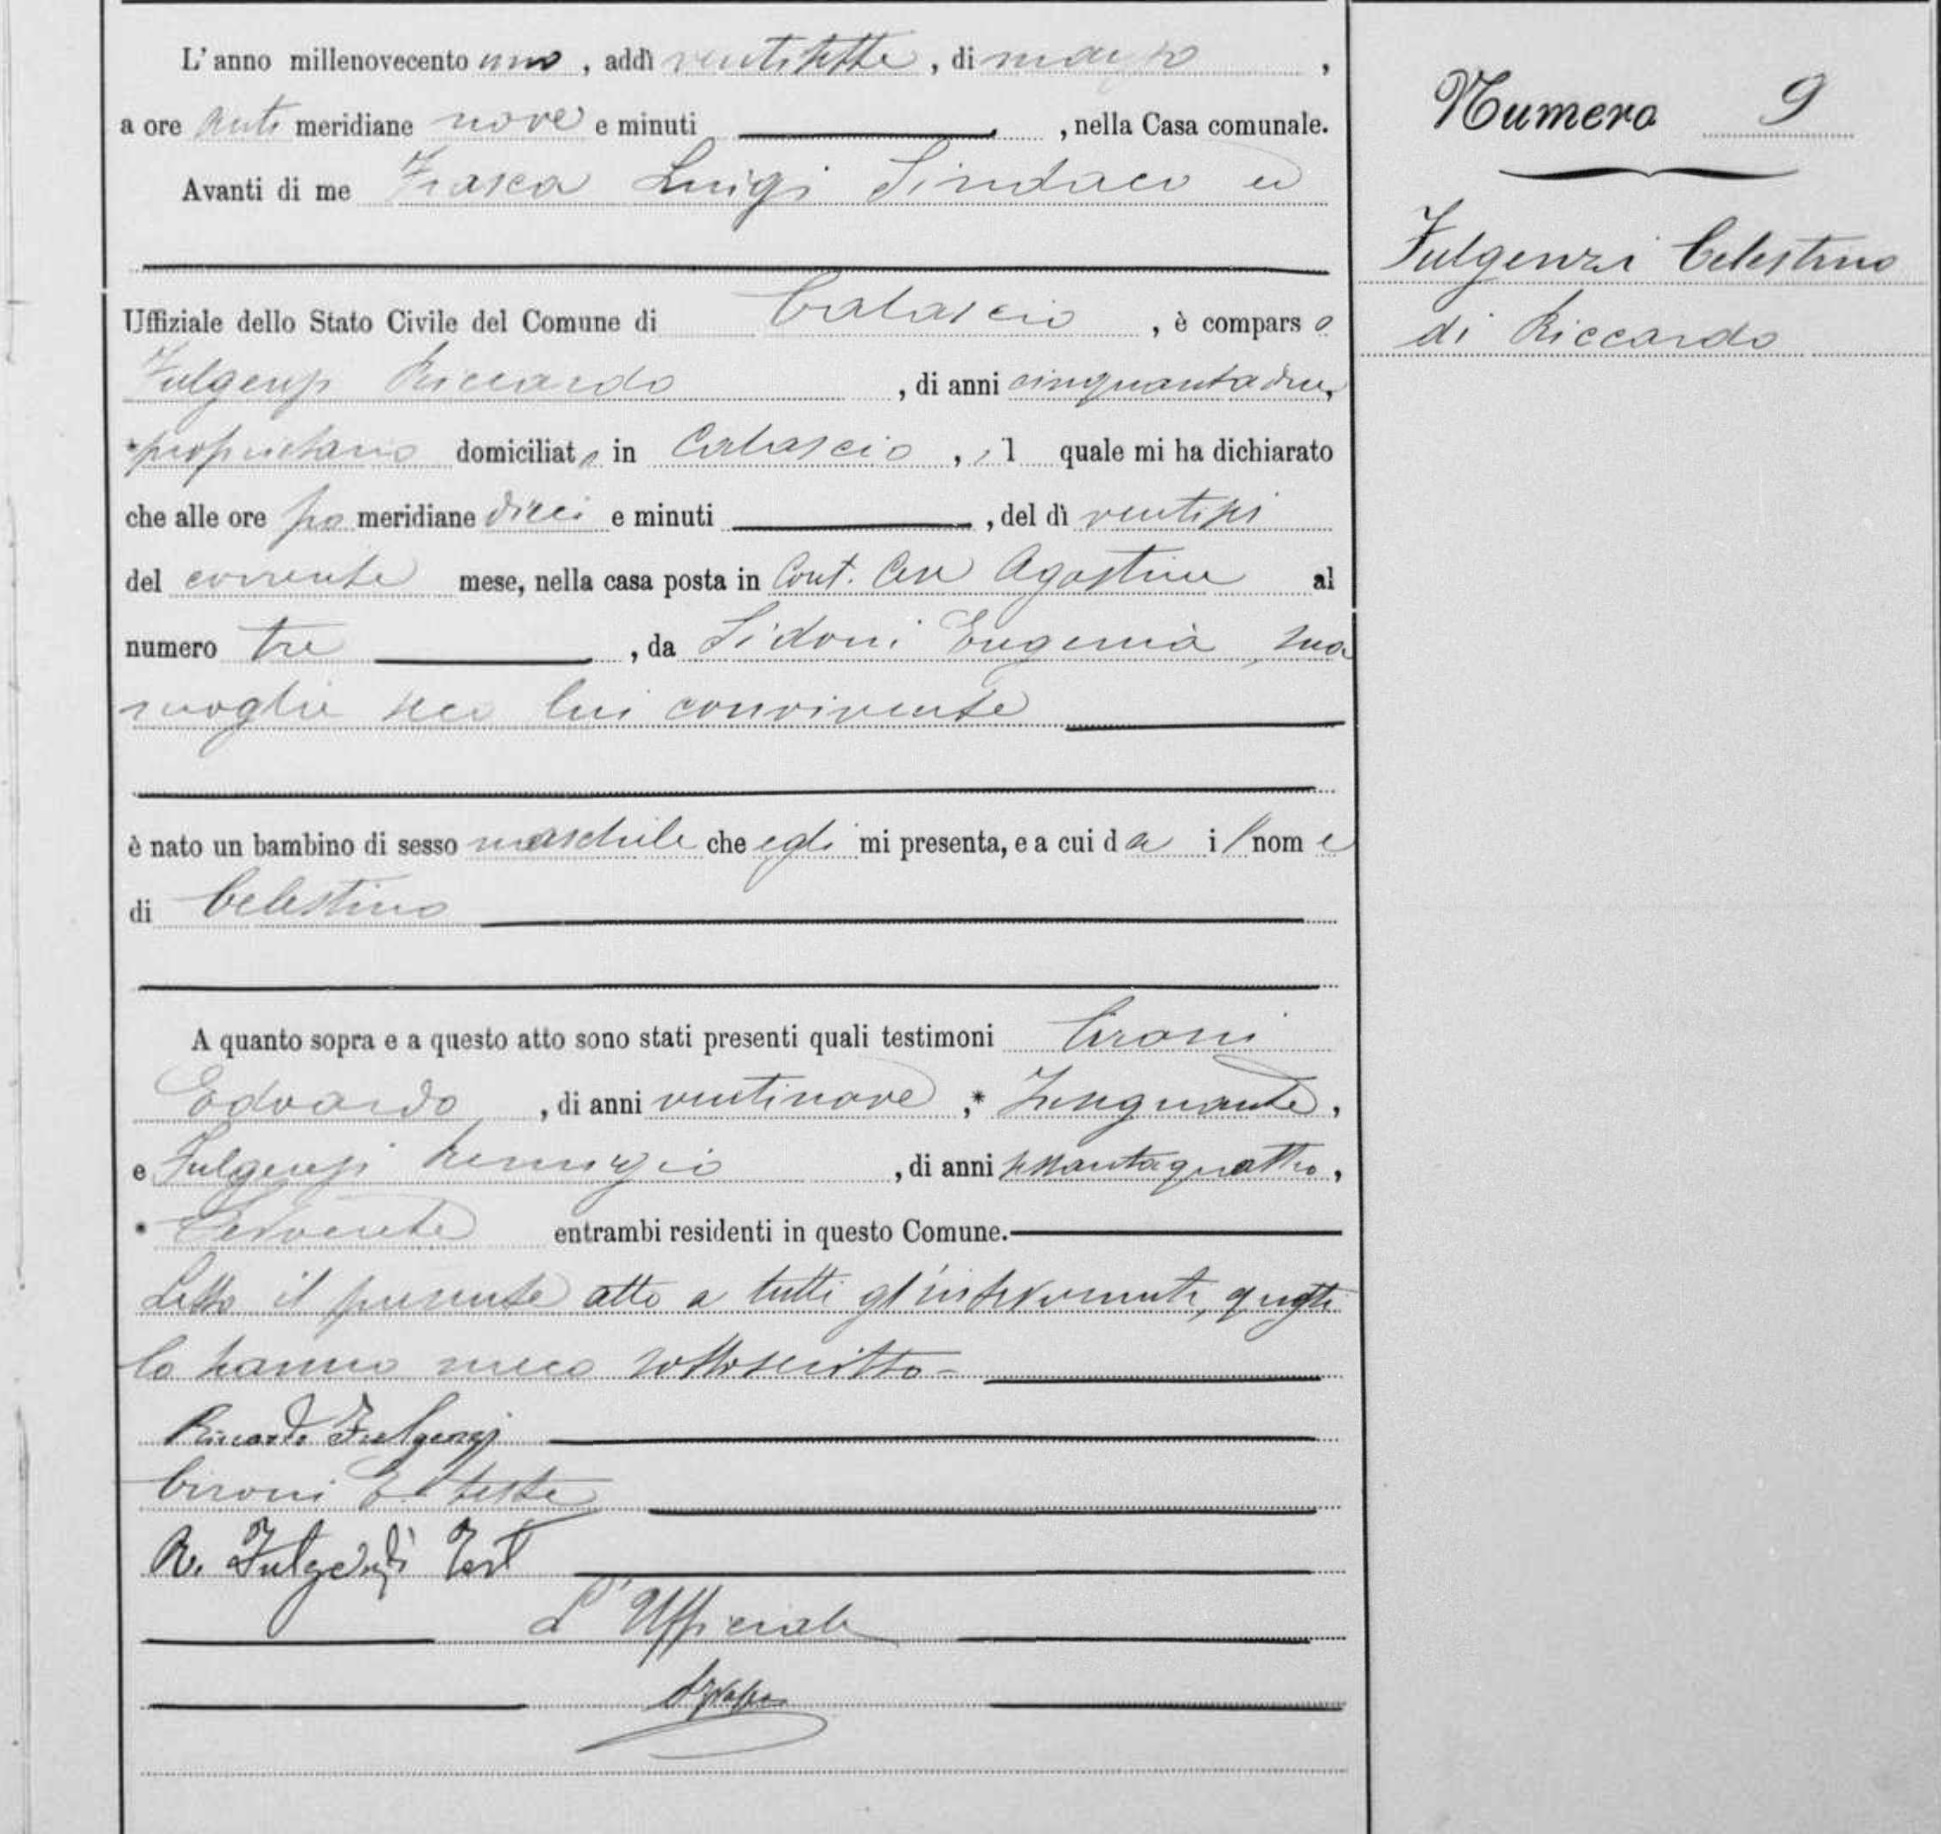 L'anno millenovecento uno, addì ventisette, di marzo,
a ore anti meridiane nove e minuti , nella Casa comunale.
Avanti di me Frasca Luigi Sindaco ed
Uffiziale dello Stato Civile del Comune di Calascio, è comparso
Fulgenzi Riccardo, di anni cinquantadue,
proprietario domiciliato in Calascio, il quale mi ha dichiarato
che alle ore po meridiane dieci e minuti , del dì ventisei
del corrente mese, nella casa posta in Cont. Agostine al
numero tre , da Sidoni Eugenia sua
moglie seco lui convivente
è nato un bambino di sesso maschile che egli mi presenta, e a cui da il nome
di Celestino
A quanto sopra e a questo atto sono stati presenti quali testimoni Cironi
Edoardo, di anni ventinove, *
e Fulgenzi Remigio, di anni sessantaquattro,
* Serviente entrambi residenti in questo Comune.
Letto il presente atto a tutti gl'intervenuti, questi
lo hanno meco sottoscritto=
Riccardo Fulgenzj
Cironi E. teste
R. Fulgenzi Test
L'Ufficiale
LFrasca
Numero 9
Fulgenzi Celestino
di Riccardo